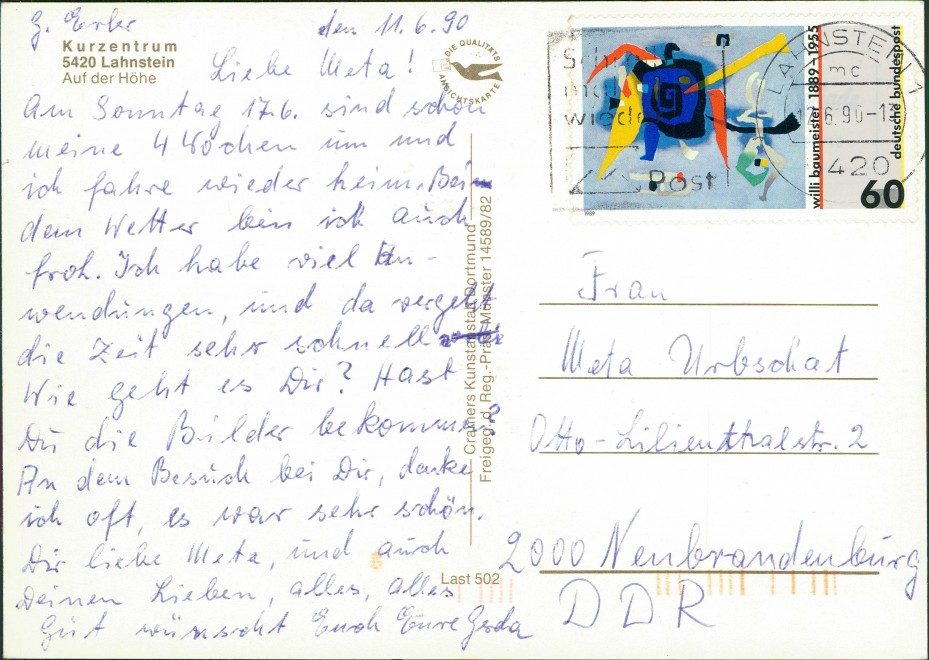 G. Erler
den 11.6.90
Kurzentrum
5420 Lahnstein
Auf der Höhe
DIE QUALITÄTS
ANSICHTSKARTE
Liebe Meta!
Am Sonntag 17.6. sind schon
meine 4 Wochen um und
ich fahre wieder heim. Bei
dem Wetter bin ich auch
froh. Ich habe viel An-
wendungen, und da vergeht
die Zeit sehr schnell
Wie geht es Dir? Hast
Du die Bilder bekommen?
An dem Besuch bei Dir, denke
ich oft, es war sehr schön.
Dir liebe Meta, und auch
Deinen Lieben, alles, alles
Gut wünscht Euch Eure Gerda
Cramers Kunstanstalt Dortmund
Freigeg. d. Reg.-Präs. Münster 14589/82
Last 502
willi baumeister 1889-1955
deutsche bundespost
60
1989
wieder
Post
LAHNSTEIN 1
mc
6.90-1
420
Frau
Meta Urbschat
Otto-Lilienthalstr. 2
2000 Neubrandenburg
DDR